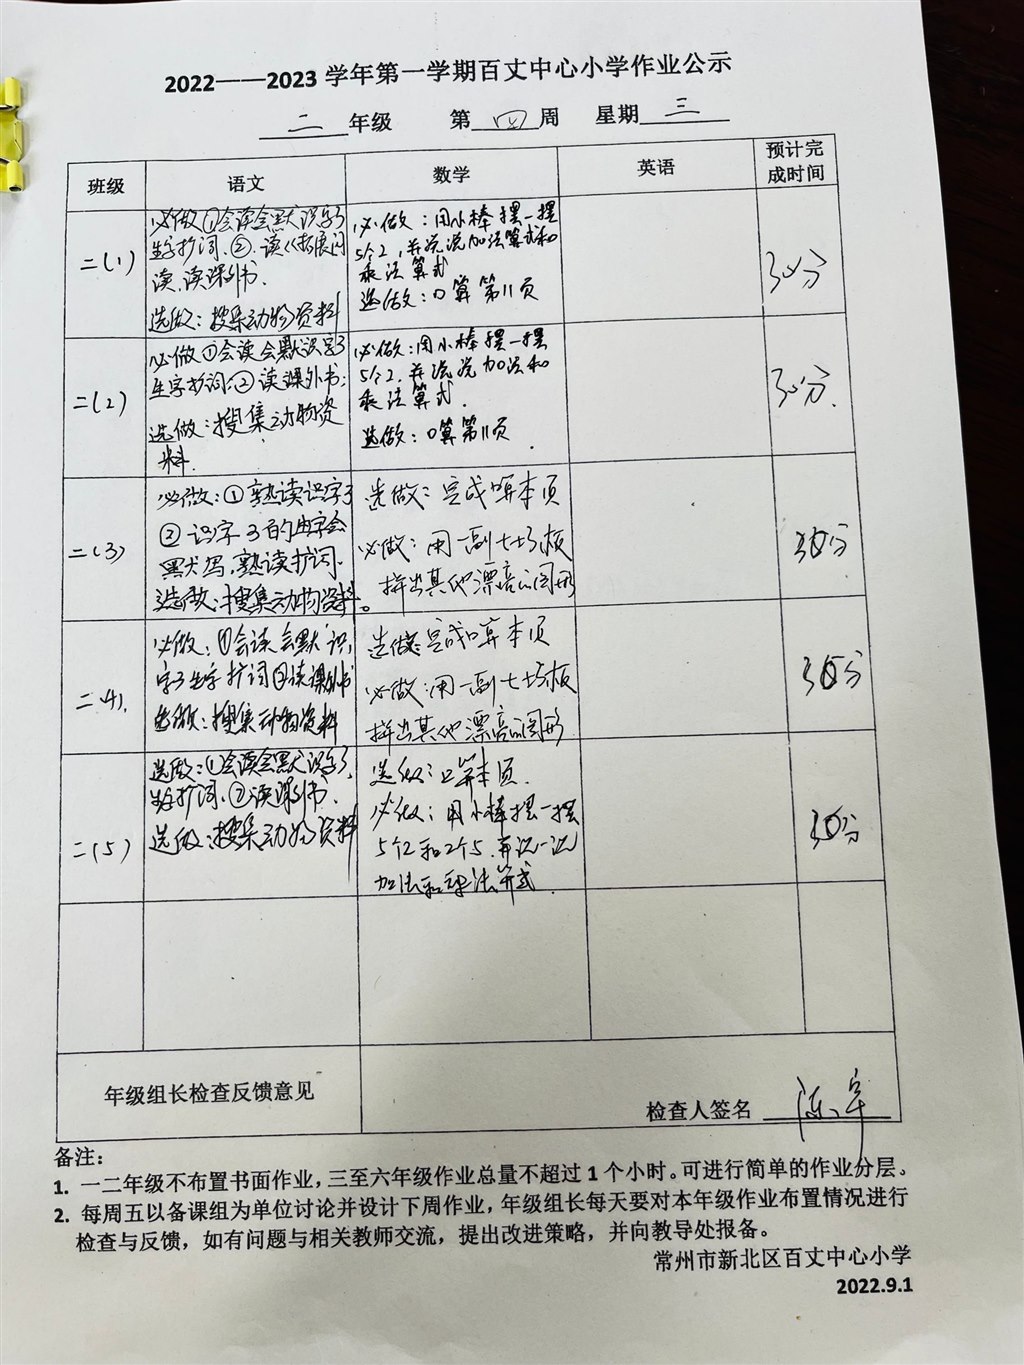 2022——2023 学年第一学期百丈中心小学作业公示
二 年级 第 四 周 星期 三
班级 语文 数学 英语 预计完成时间
二(1)
必做①会读会默识字3
生字扩词.②.读《拓展阅
读,读课外书.
选做:搜集动物资料
必做:用小棒摆一摆
5个2,并说说加法算式和
乘法算式
选做:口算第11页
30分
二(2)
必做①会读会默识字3
生字扩词;②读课外书;
选做:搜集动物资
料.
必做:用小棒摆一摆
5个2,并说说加法和
乘法算式.
选做:口算第11页.
30分.
二(3)
必做:①熟读识字3
②识字3的生字会
默写,熟读扩词.
选做:搜集动物资料。
选做:完成口算本页
必做:用一副七巧板
拼出其他漂亮的图形
30分
二(4).
必做:①会读会默识
字3生字扩词②读课外书
选做:搜集动物资料
选做:完成口算本页
必做:用一副七巧板
拼出其他漂亮的图形
30分
二(5)
选做:①会读会默识字3,
生字扩词.②读课外书.
选做:搜集动物资料
选做:口算本页.
必做:用小棒摆一摆
5个2和2个5.再说一说
加法和乘法算式.
30分
年级组长检查反馈意见
检查人签名
备注:
1. 一二年级不布置书面作业,三至六年级作业总量不超过 1 个小时。可进行简单的作业分层。
2. 每周五以备课组为单位讨论并设计下周作业,年级组长每天要对本年级作业布置情况进行
检查与反馈,如有问题与相关教师交流,提出改进策略,并向教导处报备。
常州市新北区百丈中心小学
2022.9.1